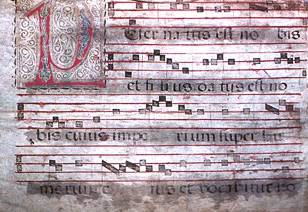 P
Uer na tus est no bis
et fi li us da tus est no
bis cuius impe rium super hu
merum e ius et vocabitur no